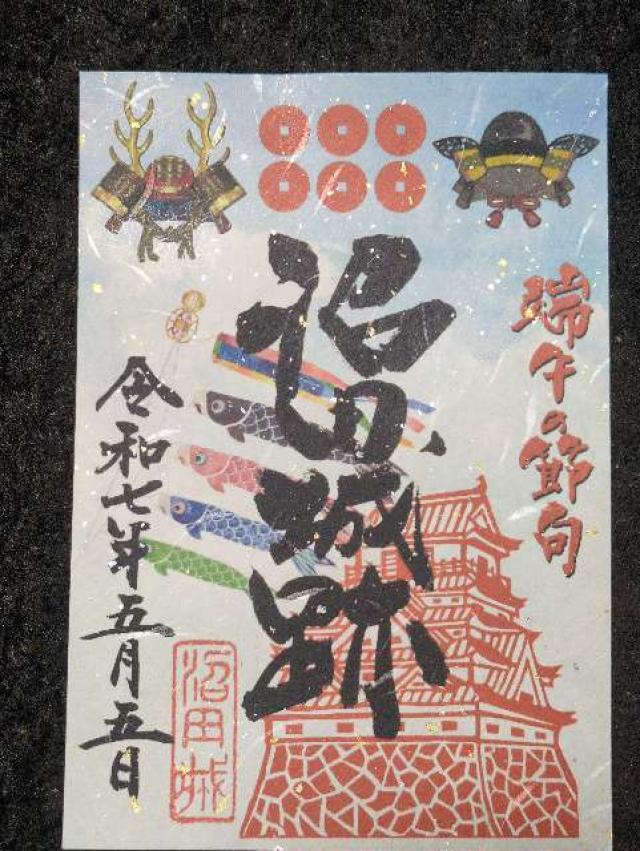 端午の節句
沼田城跡
令和七年五月五日
沼田城